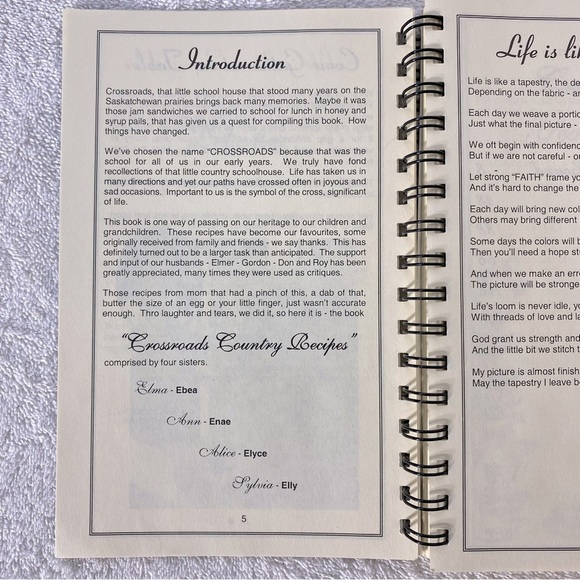 Introduction
Crossroads, that little school house that stood many years on the
Saskatchewan prairies brings back many memories. Maybe it was
those jam sandwiches we carried to school for lunch in honey and
syrup pails, that has given us a quest for compiling this book. How
things have changed.
We've chosen the name "CROSSROADS" because that was the
school for all of us in our early years. We truly have fond
recollections of that little country schoolhouse. Life has taken us in
many directions and yet our paths have crossed often in joyous and
sad occasions. Important to us is the symbol of the cross, significant
of life.
This book is one way of passing on our heritage to our children and
grandchildren. These recipes have become our favourites, some
originally received from family and friends - we say thanks. This has
definitely turned out to be a larger task than anticipated. The support
and input of our husbands - Elmer - Gordon - Don and Roy has been
greatly appreciated, many times they were used as critiques.
Those recipes from mom that had a pinch of this, a dab of that,
butter the size of an egg or your little finger, just wasn't accurate
enough. Thro laughter and tears, we did it, so here it is - the book
"Crossroads Country Recipes"
comprised by four sisters.
Elma - Ebea
Ann - Enae
Alice - Elyce
Sylvia - Elly
5
Life is li
Life is like a tapestry, the de
Depending on the fabric - a
Each day we weave a portio
Just what the final picture -
We oft begin with confidenc
But if we are not careful - o
Let strong "FAITH" frame yo
And it's hard to change the
Each day will bring new col
Others may bring different
Some days the colors will b
Then you'll need a hope st
And when we make an erro
The picture will be stronge
Life's loom is never idle, yo
With threads of love and la
God grant us strength and
And the little bit we stitch t
My picture is almost finish
May the tapestry I leave b